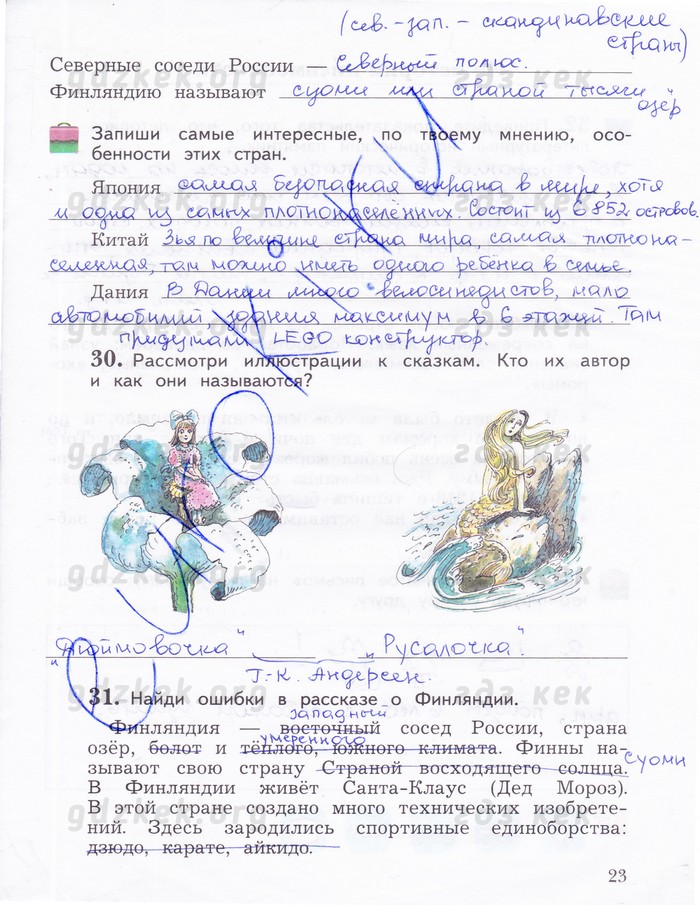 (сев.-зап. - скандинавские
страны)
Северные соседи России — Северный полюс.
Финляндию называют суоми или страной тысячи
озёр
Запиши самые интересные, по твоему мнению, осо-
бенности этих стран.
Япония самая безопасная страна в мире, хотя
и одна из самых плотнонаселенных. Состоит из 6 852 островов.
Китай 3ья по величине страна мира, самая плотнона-
селенная, там можно иметь одного ребёнка в семье.
Дания В Дании много велосипедистов, мало
автомобилий, здания максимум в 6 этажей. Там
придумали LEGO конструктор.
30. Рассмотри иллюстрации к сказкам. Кто их автор
и как они называются?
"Дюймовочка" и "Русалочка"
Г.-К. Андерсен.
31. Найди ошибки в рассказе о Финляндии.
западный
Финляндия — восточный сосед России, страна
умеренного
озёр, болот и тёплого, южного климата. Финны на-
зывают свою страну Страной восходящего солнца. Суоми
В Финляндии живёт Санта-Клаус (Дед Мороз).
В этой стране создано много технических изобрете-
ний. Здесь зародились спортивные единоборства:
дзюдо, карате, айкидо.
23
gdzkek.org
гдз кек